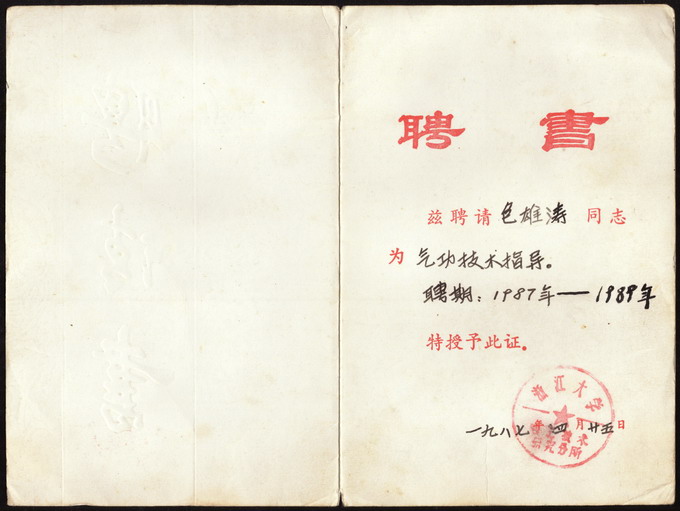 聘書
兹聘请色雄涛同志
为气功技术指导。
聘期：1987年——1989年
特授予此证。
浙江大学
一九八七年四月廿五日